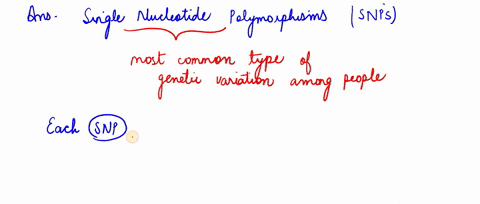 Ans. Single Nucleotide Polymorphisms (SNPs)
most common type of
genetic variation among people
Each SNP